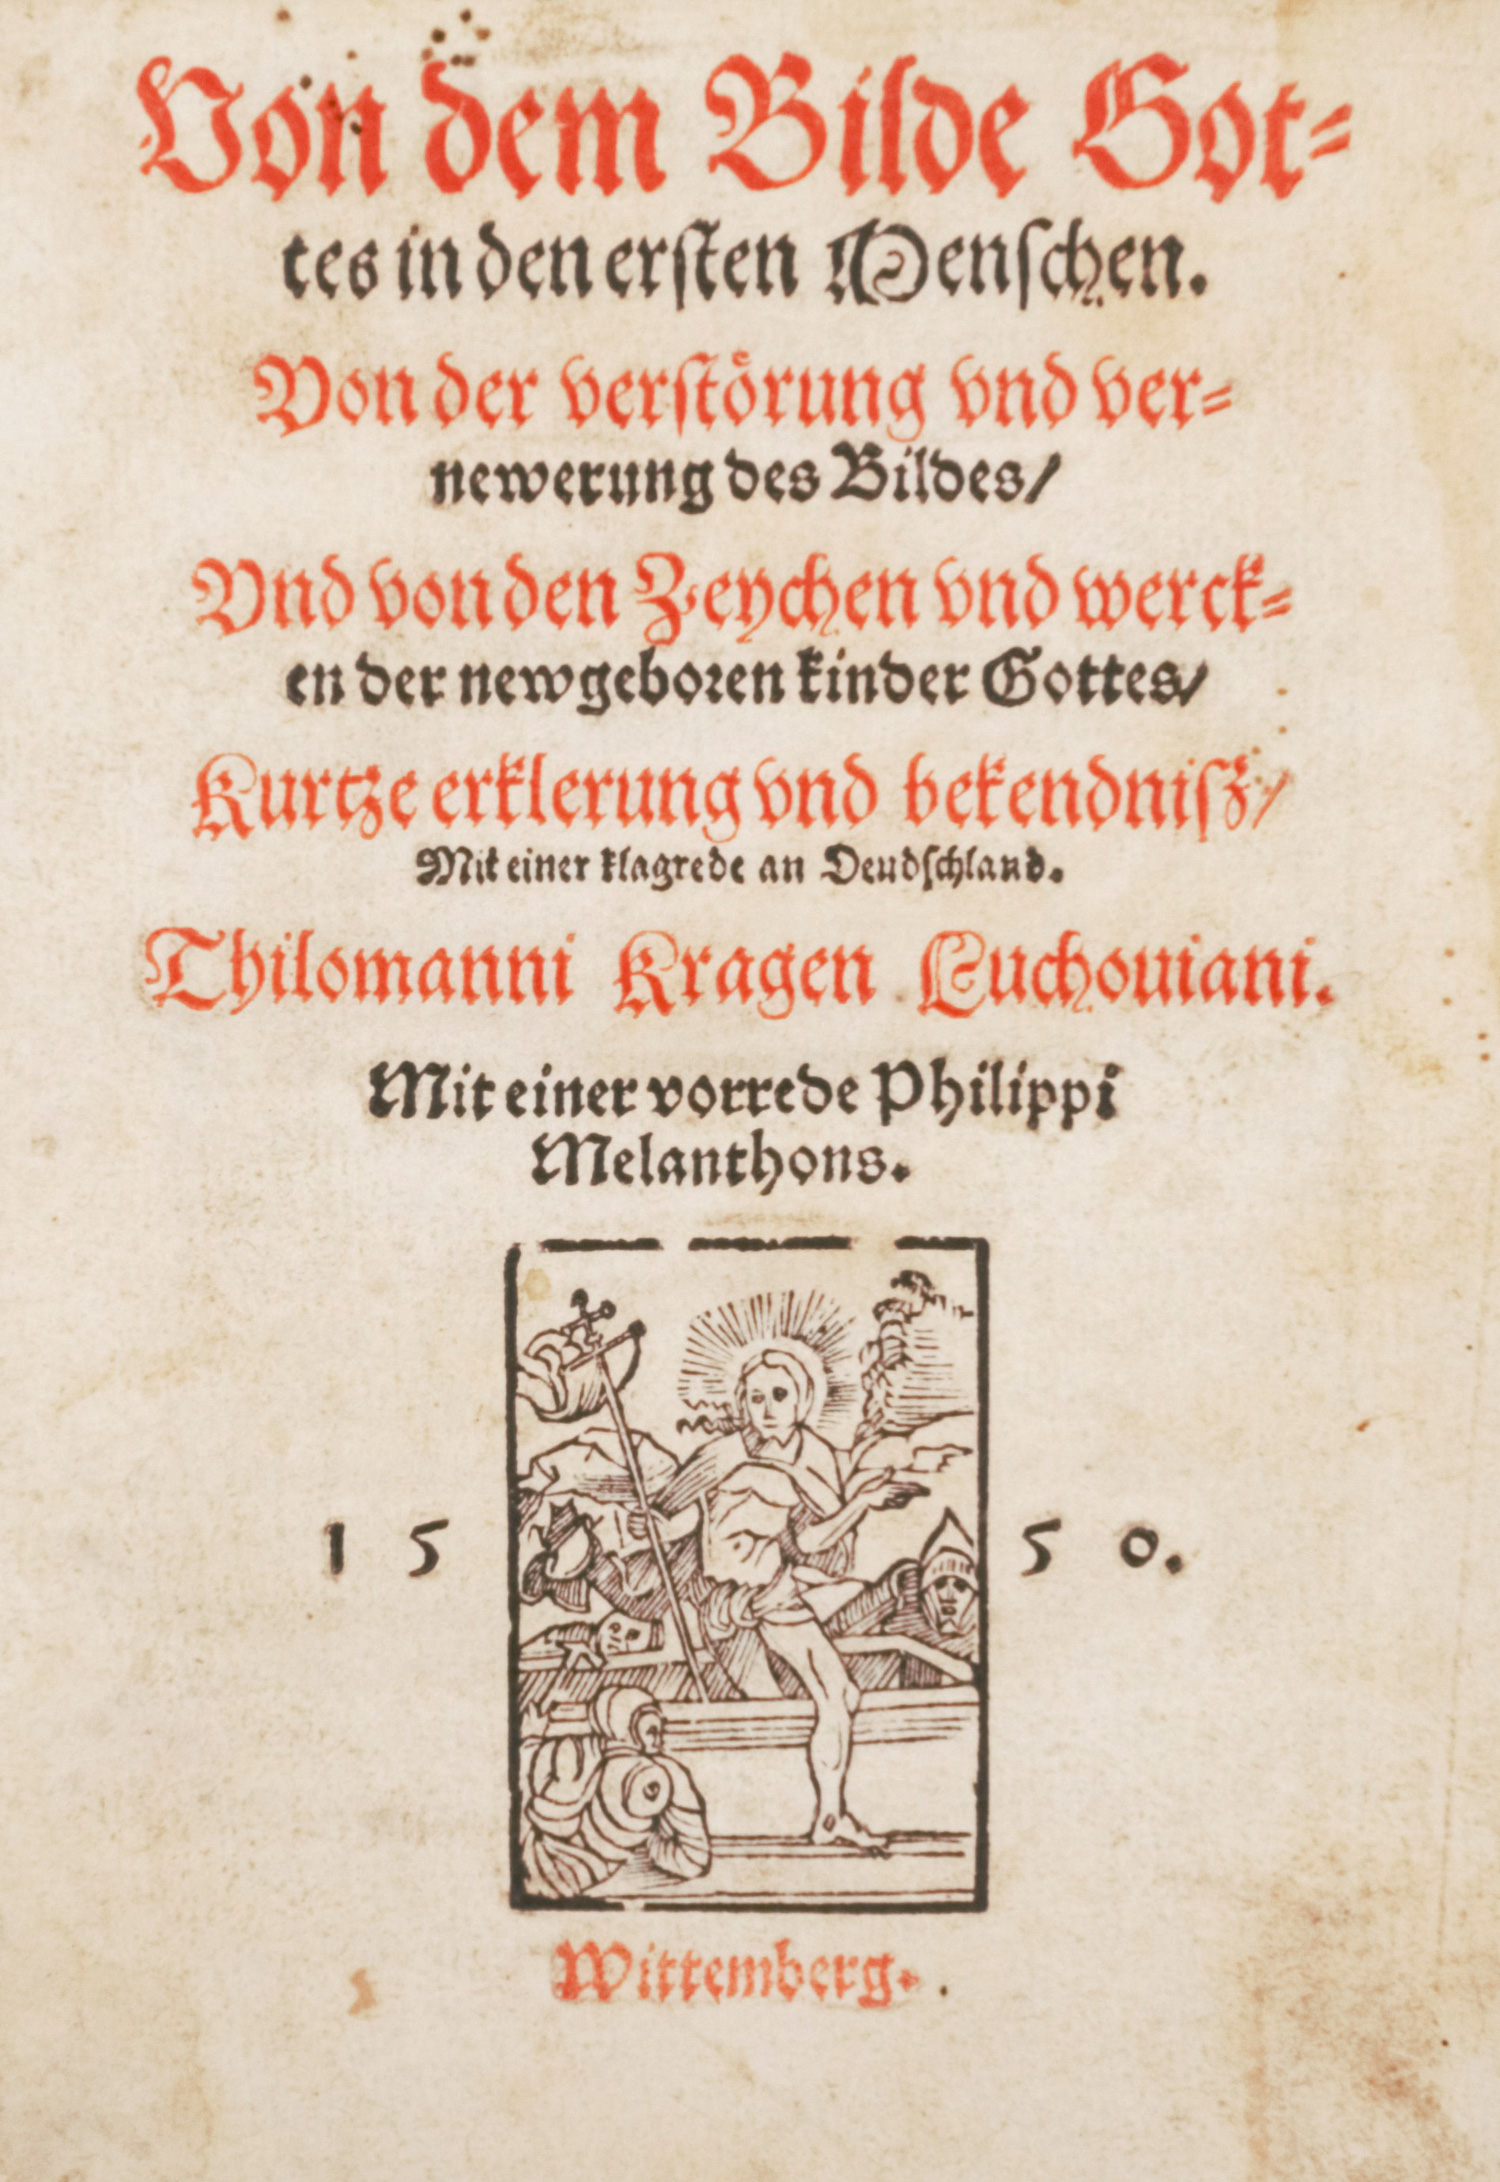 Von dem Bilde Got⸗
tes in den erſten Menſchen.
Von der verſtoͤrung vnd ver⸗
newerung des Bildes/
Vnd von den Zeychen vnd werck⸗
en der newgeboren kinder Gottes/
Kurtze erklerung vnd bekendniſz/
Mit einer klagrede an Deudſchland.
Thilomanni Kragen Luchouiani.
Mit einer vorrede Philippi
Melanthons.
1 5 5 0.
Wittemberg.